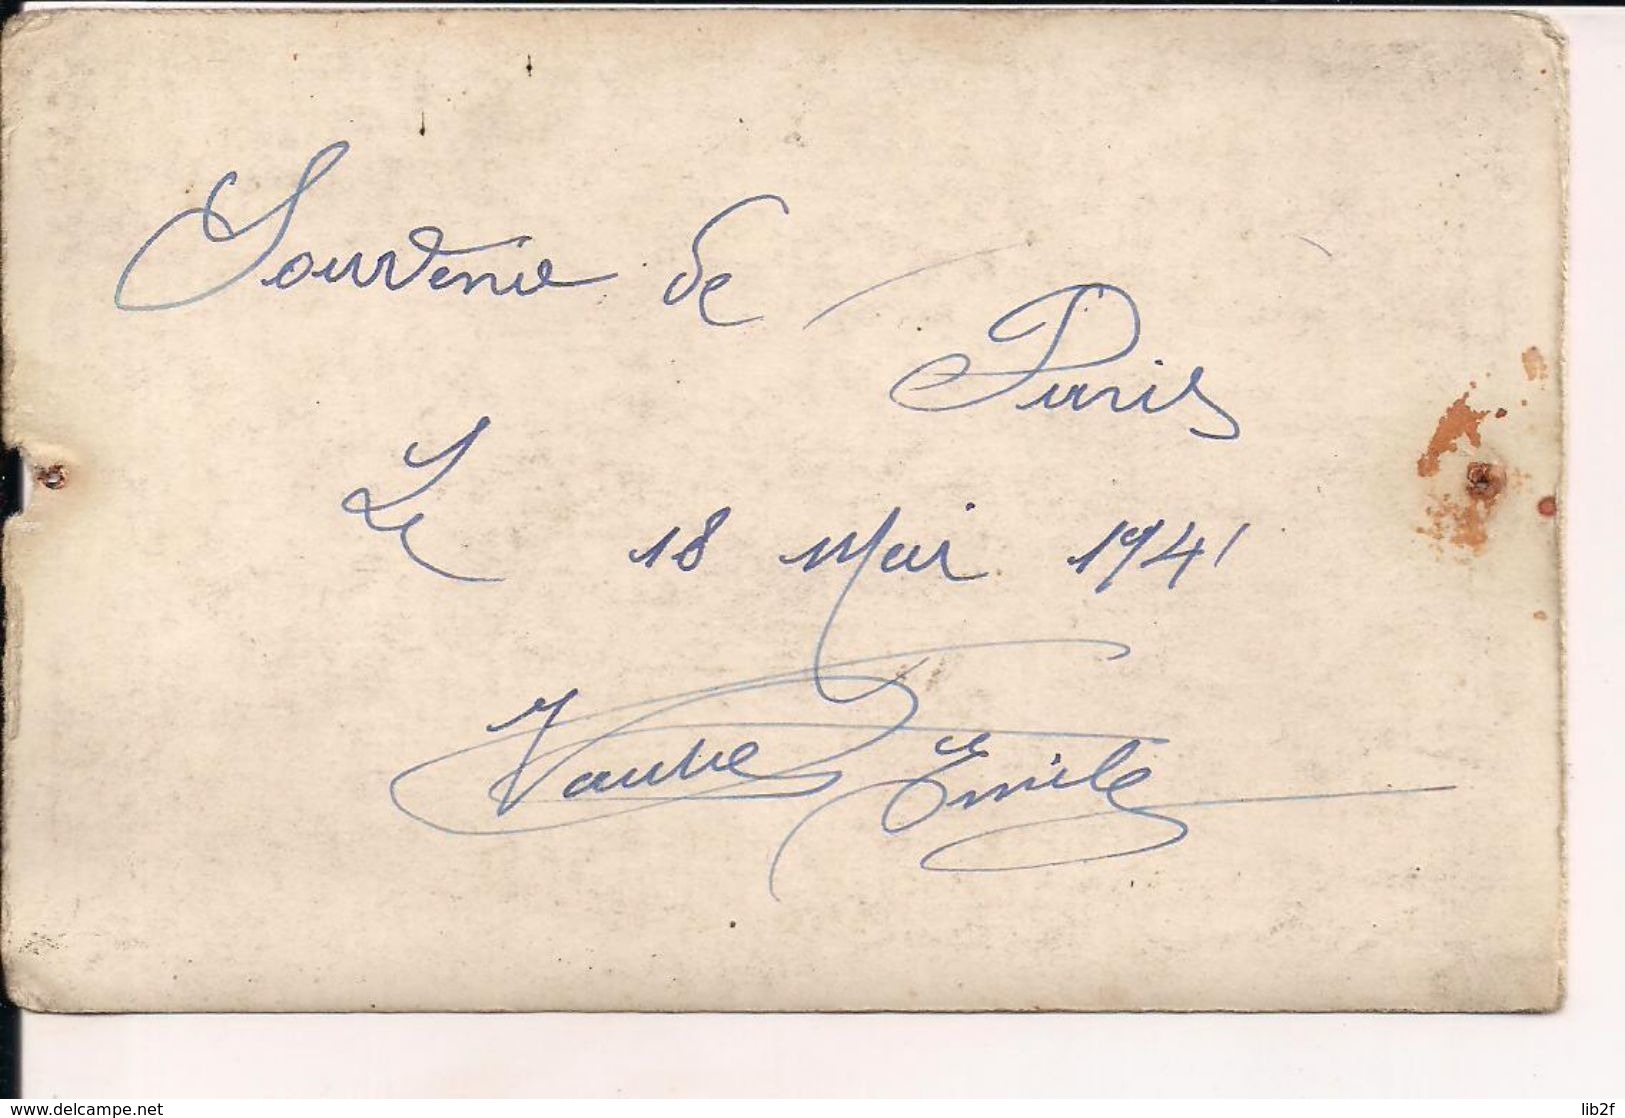 Souvenir de
Paris
Le 18 Mai 1941
Emile
www.delcampe.net
lib2f